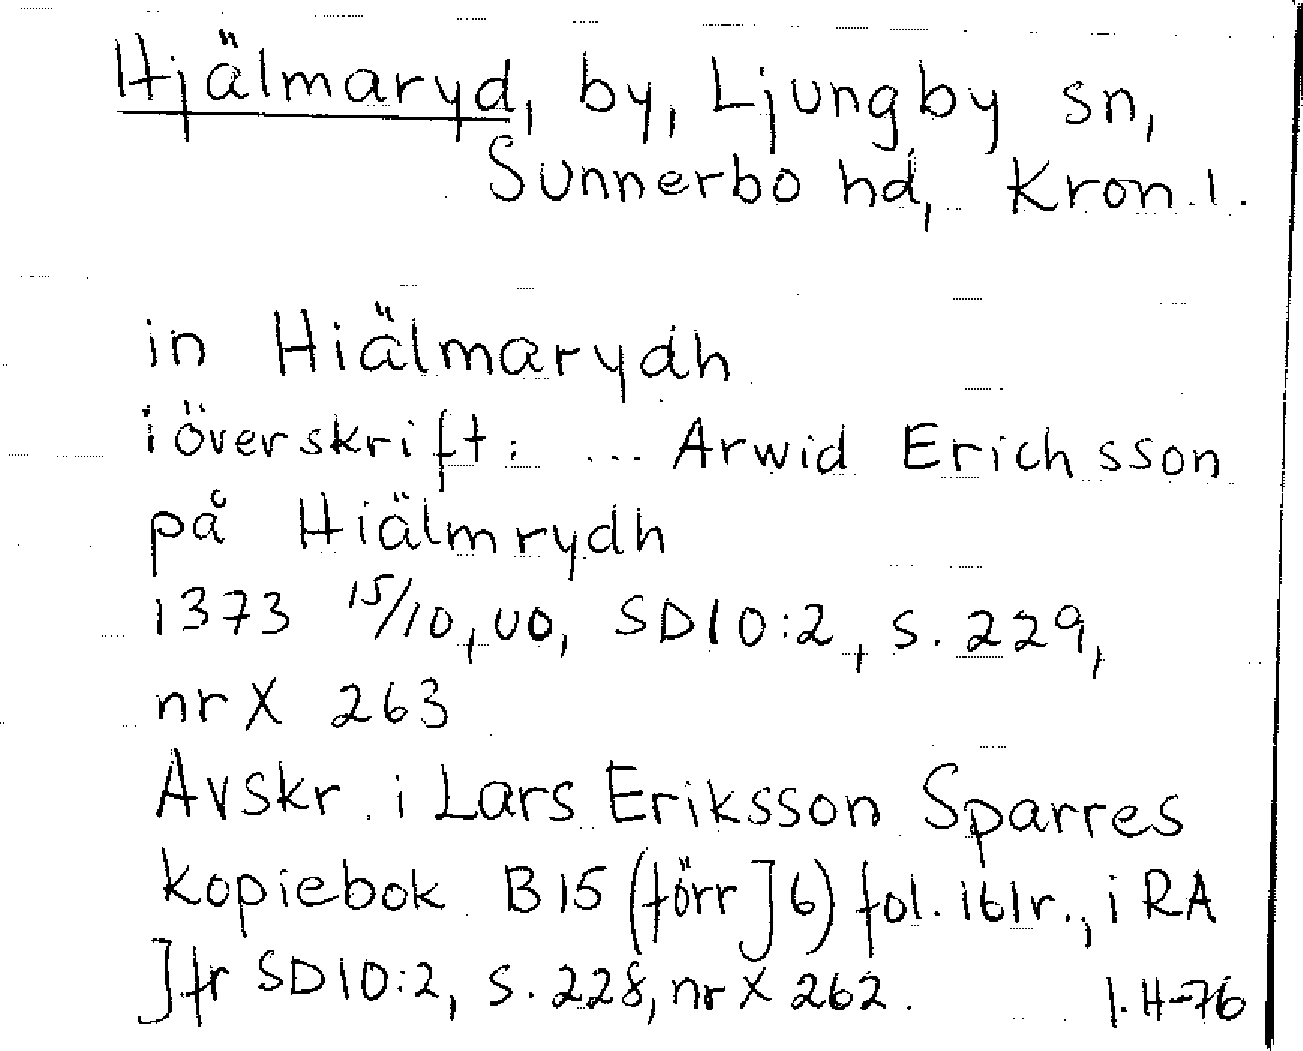 Hjälmaryd, by, Ljungby sn,
Sunnerbo hd, Kron.l.
in Hiälmarydh
i överskrift: ... Arwid Erichsson
på Hiälmrydh
1373 15/10, uo, SD10:2, s. 229,
nr X 263
Avskr. i Lars Eriksson Sparres
kopiebok B15 (förr J6) fol. 161r., i RA
Jfr SD10:2, s. 228, nr X 262.
I.H-76